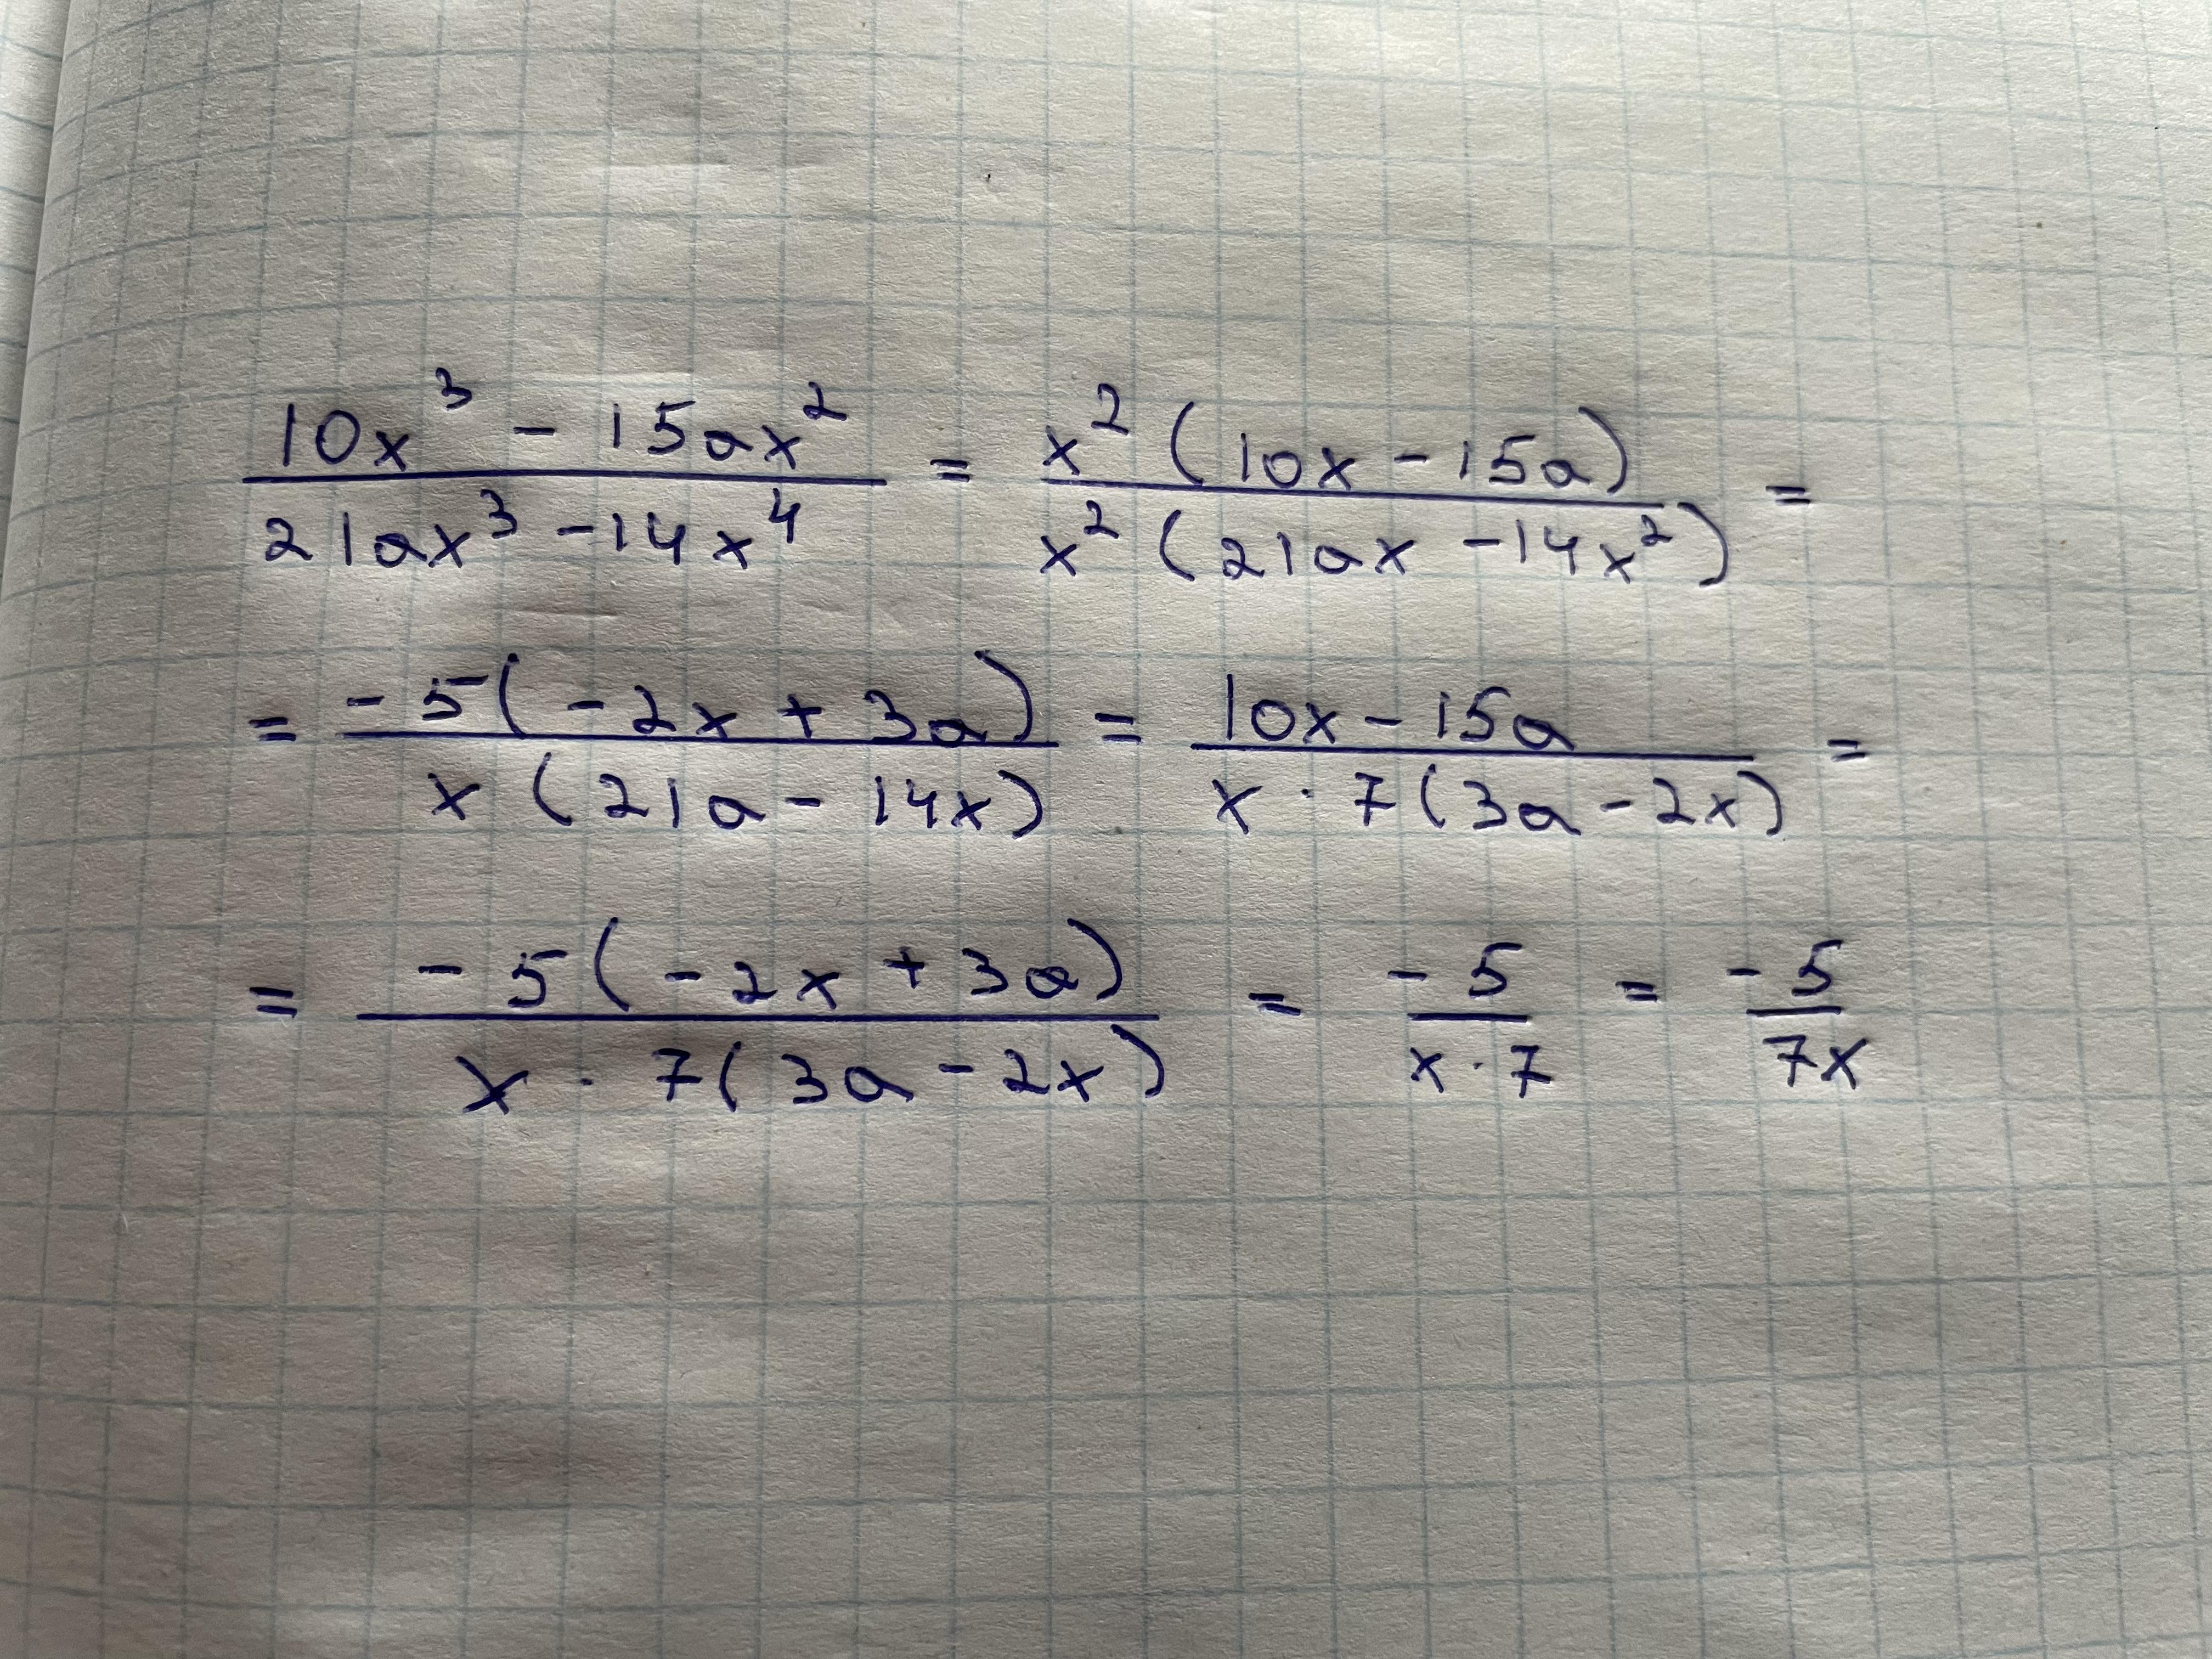 (10x³ - 15ax²)/(21ax³ - 14x⁴) = (x²(10x - 15a))/(x²(21ax - 14x²)) =
= (-5(-2x + 3a))/(x(21a - 14x)) = (10x - 15a)/(x · 7(3a - 2x)) =
= (-5(-2x + 3a))/(x · 7(3a - 2x)) = (-5)/(x · 7) = (-5)/(7x)